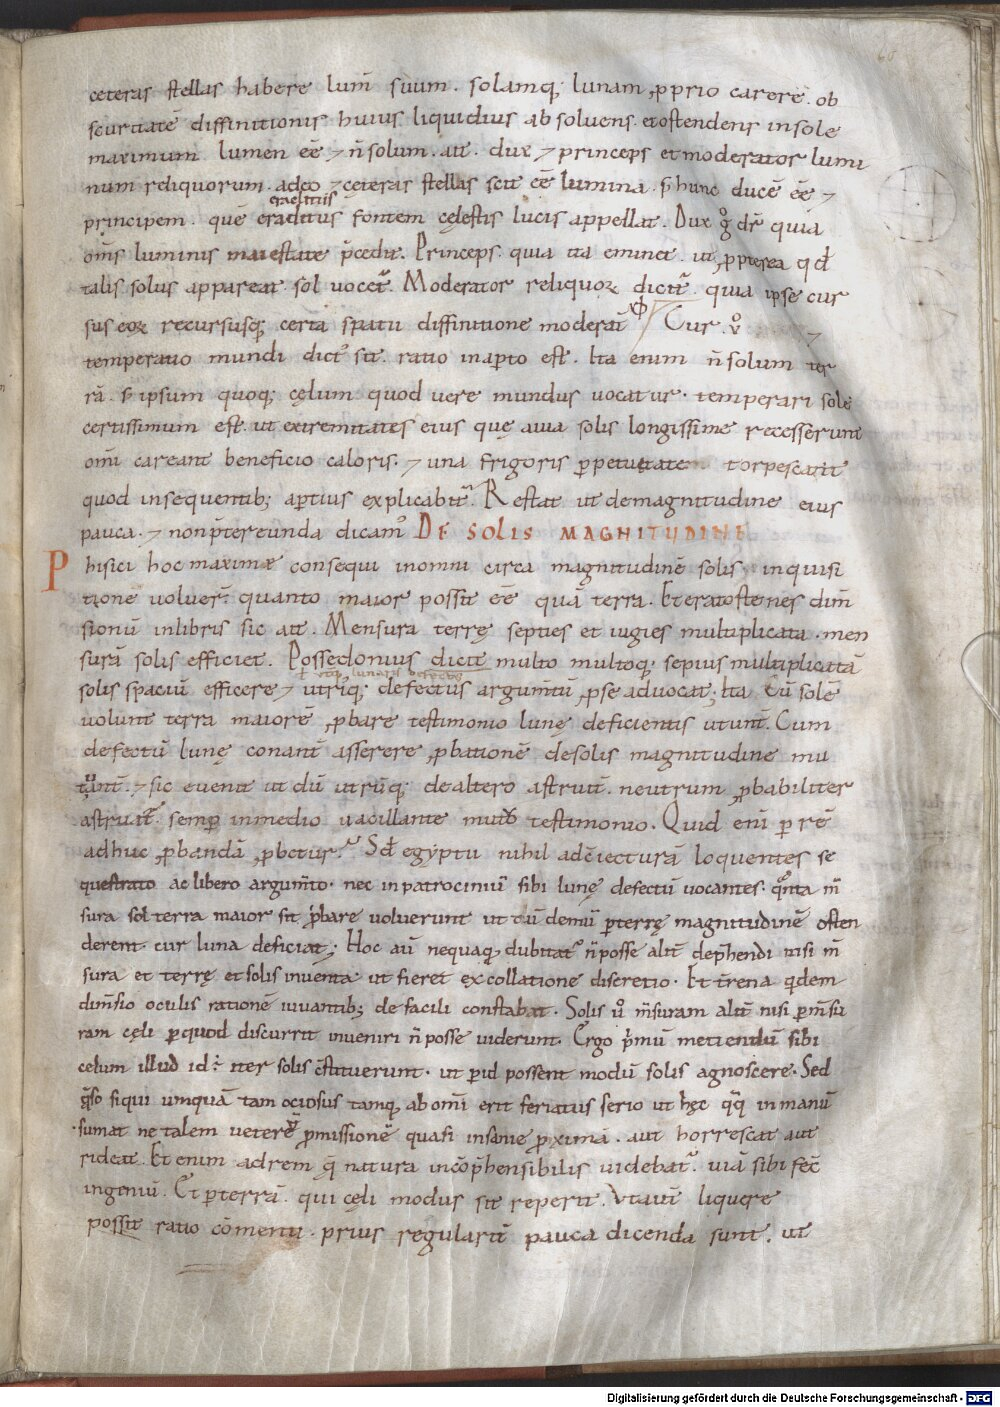 ceteras stellas habere lum̅ suum. solamq; lunam ꝓprio carere. ob
scuritatē diffinitionis huius liquidius absoluens. et ostendens in sole
maximum lumen eē ⁊ n̅ solum. ait. dux ⁊ princeps et moderator lumi
num reliquorum. adeo ⁊ ceteras stellas scit eē lumina. s; hunc ducē eē ⁊
principem. quē eraditus fontem cęlestis lucis appellat. Dux g̊ dr̅ quia
om̅s luminis maiestate p̅cedit. Princeps. quia ita eminet. ut ꝓpterea qđ
talis solus appareat. sol vocet᷑. Moderator reliquoꝝ dicit᷑. quia ipse cur
sus eoꝝ recursusq; certa spatii diffinitione moderat᷑ Cur. v̊ ⁊
temperatio mundi dict᷒ sit. ratio in aꝑto est. Ita enim n̅ solum ter
rā. s; ipsum quoq; cęlum quod vere mundus vocatur. temperari sole
certissimum est. ut extremitates eius quę a via solis longissime recesserunt
om̅i careant beneficio caloris. ⁊ una frigoris ꝑpetuitate torpescant
quod insequentib; aꝑtius explicabit᷑. Restat ut de magnitudine eius
pauca. ⁊ non p̅tereunda dicam᷒ DE SOLIS MAGNITUDINE
Phisici hoc maxime consequi in omni circa magnitudinē solis. inquisi
tione voluer̅. quanto maior possit eē quā terra. Et eratostenes dim̅
sionū in libris sic ait. Mensura terrę septies et vigies multiplicata. men
surā solis efficiet. Possedonius dicit multo multoq; sepius multiplicatā
solis spaciū efficere ⁊ utriq; defectus argum̅tū ꝓ se advocat. Ita Cū solē
volunt terra maiorē ꝓbare testimonio lunę deficientis utunt᷑. Cum
defectū lunę conant᷑ asserere ꝓbationē de solis magnitudine mu
tuant᷑. ⁊ sic evenit ut dū utrūq; de altero astruit᷑. neutrum ꝓbabiliter
astruat᷑. semꝑ in medio vacillante mutuo testimonio. Quid eni̅ ꝑ rē
adhuc ꝓbandā ꝓbetur. Sđ egyptii nihil ad c̅iecturā loquentes se
questrato ac libero argum̅to. nec in patrociniū sibi lunę defectū vocantes. qᷓnta m̅
sura sol terra maior sit p̅bare voluerunt ut tū demū ꝑ terrę magnitudinē osten
derent cur luna deficiat; Hoc au̅ nequaq̄ dubitat᷑ n̅ posse alit̅ dep̅hendi nisi m̅
sura et terrę et solis inventa ut fieret ex collatione discretio. Et t̅rena q̇dem
dim̅sio oculis rationē iuvantib; de facili constabat. Solis v̊ m̅suram alit̅ nisi ꝑ m̅su
ram cęli ꝑ quod discurrit inveniri n̅ posse viderunt. Ergo p̅mū metiendū sibi
celum illud id.̅ iter solis c̅stituerunt. ut ꝑ id possent modū solis agnoscere. Sed
qᷓso si qui umquā tam ociosus tamq; ab om̅i erit feriatus serio ut hęc q̊q̇ in manū
sumat ne talem veterū ꝓmissionē quasi insanie ꝓximā. aut horrescat aut
rideat. Et enim ad rem q̅ natura inco̅p̅hensibilis videbat᷑. viā sibi fec̅
ingeniū. Et ꝑ terrā. qui cęli modus sit reperit. Ut aut̅ liquere
possit ratio co̅menti. prius regularit̅ pauca dicenda sunt. ut
Digitalisierung gefördert durch die Deutsche Forschungsgemeinschaft - DFG